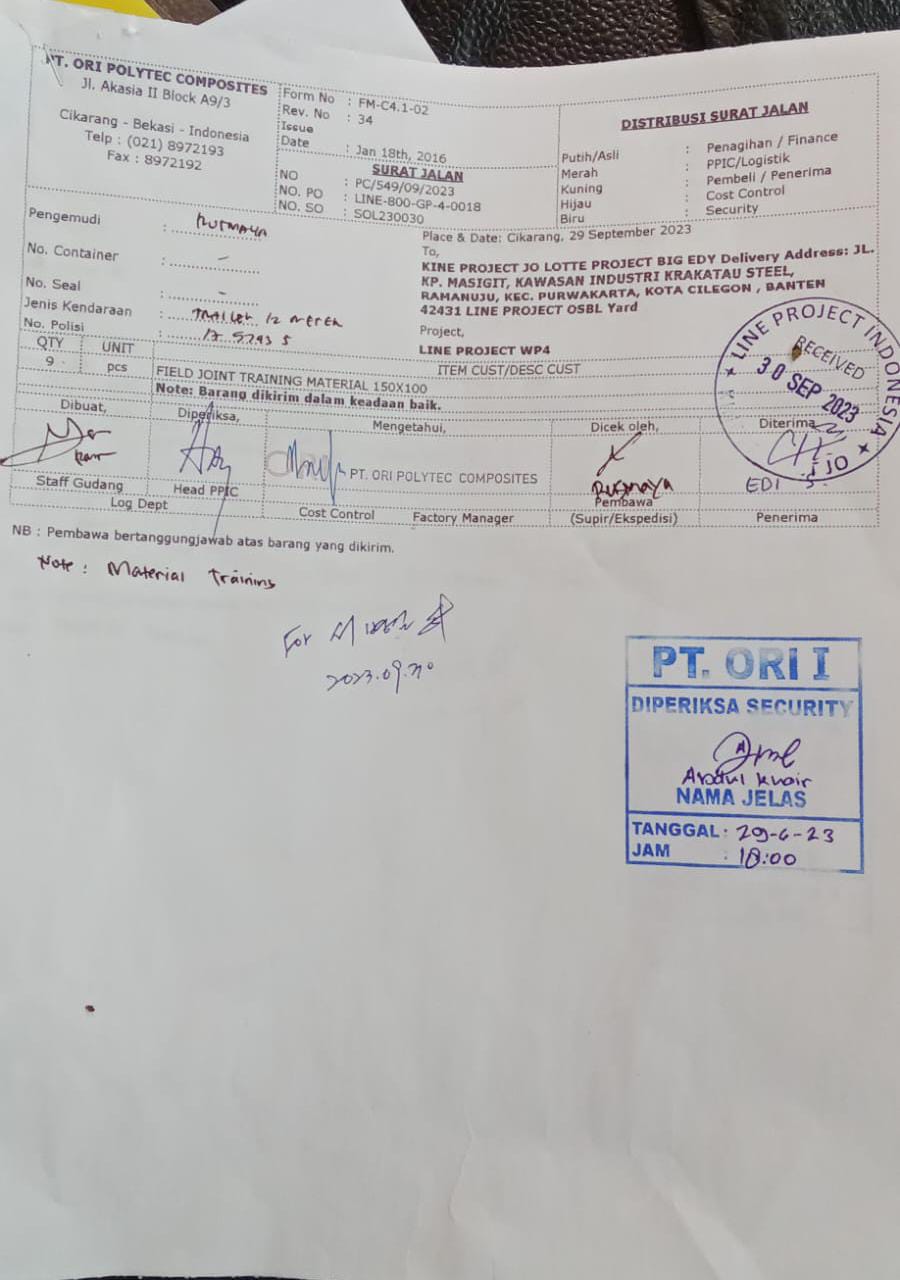 PT. ORI POLYTEC COMPOSITES
Jl. Akasia II Block A9/3
Cikarang - Bekasi - Indonesia
Telp : (021) 8972193
Fax : 8972192
Form No : FM-C4.1-02
Rev. No : 34
Issue
Date : Jan 18th, 2016
SURAT JALAN
NO : PC/549/09/2023
NO. PO : LINE-800-GP-4-0018
NO. SO : SOL230030
DISTRIBUSI SURAT JALAN
Putih/Asli : Penagihan / Finance
Merah : PPIC/Logistik
Kuning : Pembeli / Penerima
Hijau : Cost Control
Biru : Security
Pengemudi : RUSMAYA
No. Container : -
No. Seal : -
Jenis Kendaraan : TRAILER 12 METER
No. Polisi :
Place & Date: Cikarang, 29 September 2023
To,
KINE PROJECT JO LOTTE PROJECT BIG EDY Delivery Address: JL.
KP. MASIGIT, KAWASAN INDUSTRI KRAKATAU STEEL,
RAMANUJU, KEC. PURWAKARTA, KOTA CILEGON , BANTEN
42431 LINE PROJECT OSBL Yard
Project,
LINE PROJECT WP4
QTY UNIT ITEM CUST/DESC CUST
9 pcs FIELD JOINT TRAINING MATERIAL 150X100
Note: Barang dikirim dalam keadaan baik.
LINE PROJECT INDONESIA
RECEIVED
30 SEP 2023
JO
Dibuat, Diperiksa, Mengetahui, Dicek oleh, Diterima
PT. ORI POLYTEC COMPOSITES
RUSMAYA
EDI S
Staff Gudang Head PPIC Cost Control Factory Manager Pembawa
(Supir/Ekspedisi) Penerima
Log Dept
NB : Pembawa bertanggungjawab atas barang yang dikirim.
Note : Material Training
For
2023.09.30
PT. ORI I
DIPERIKSA SECURITY
Abdul Khoir
NAMA JELAS
TANGGAL : 29-6-23
JAM : 18:00